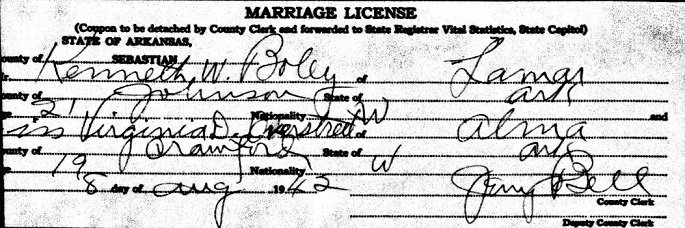 MARRIAGE LICENSE
(Coupon to be detached by County Clerk and forwarded to State Registrar Vital Statistics, State Capitol)
STATE OF ARKANSAS,
ounty of SEBASTIAN
r. Kenneth W. Boley of Lamar
ounty of Johnson State of Ark
ge 21 Nationality W and
iss Virginia D. Overstreet of Alma
ounty of Crawford State of Ark
e 19 Nationality W
8 day of Aug 1942 Bell
County Clerk
Deputy County Clerk